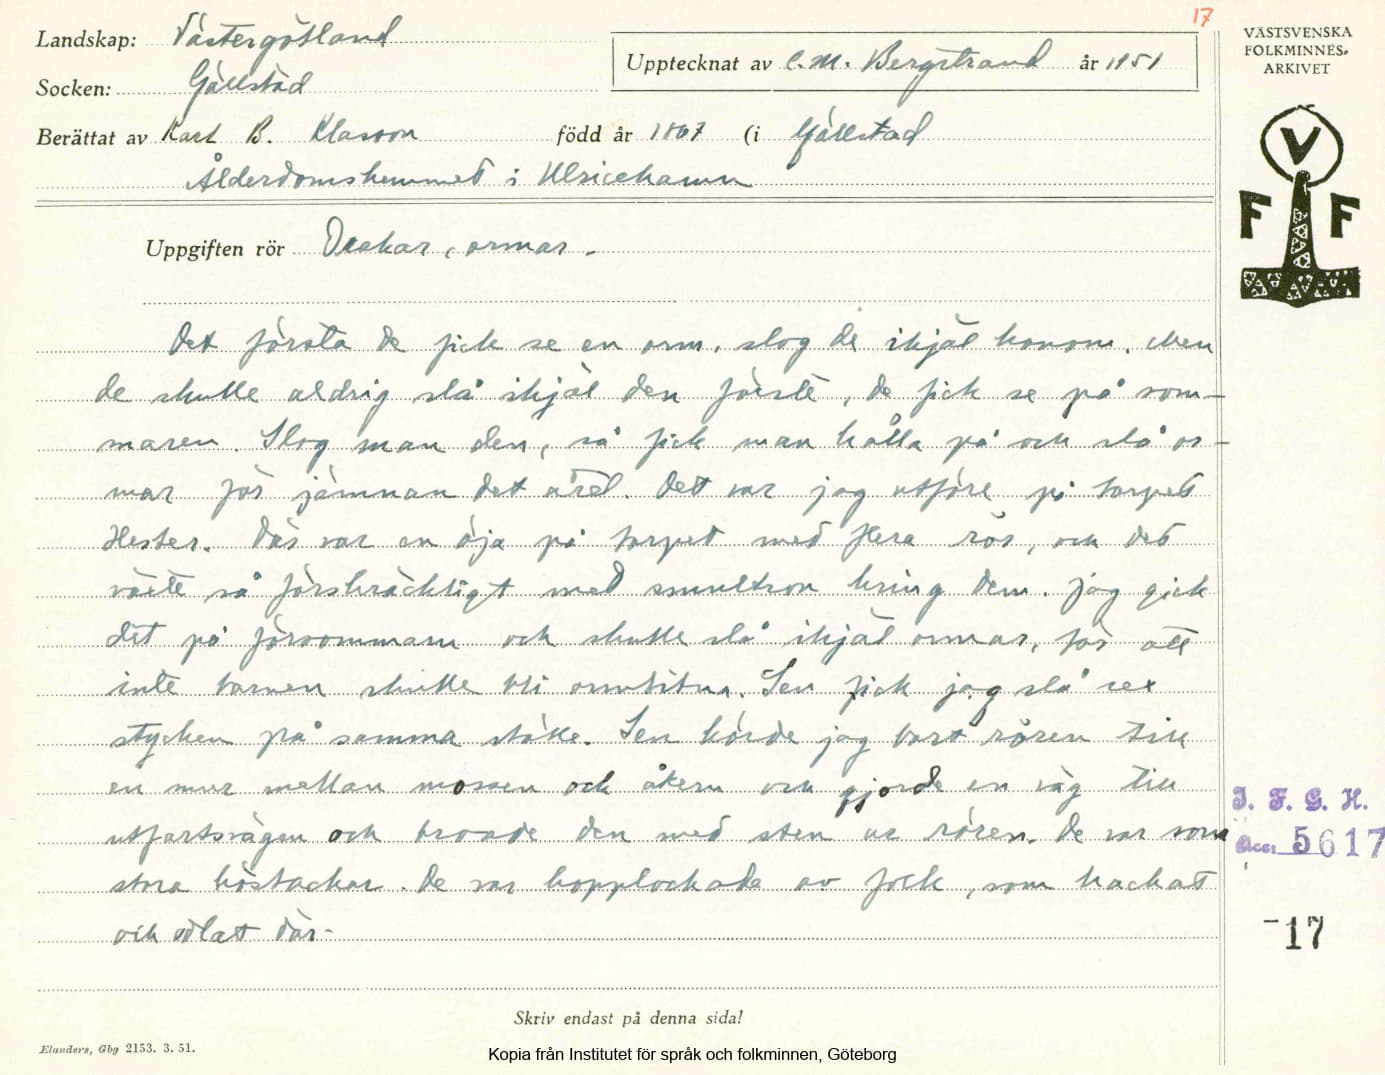 17
Landskap: Västergötland
Socken: Gällstad
Upptecknat av C. M. Bergstrand år 1951
Berättat av Karl B. Klasson född år 1867 (i Gällstad
Ålderdomshemmet i Ulricehamn
Uppgiften rör Drakar, ormar.
Det första de fick se en orm, slog de ihjäl honom. Men
de skulle aldrig slå ihjäl den förste, de fick se på som-
maren. Slog man den, så fick man hålla på och slå or-
mar för jämnan det året. Det var jag utförd på torpet
Hester. Där var en öja på torpet med flera rös, och det
växte så förskräckligt med smultron kring dem. Jag gick
dit på försommarn och skulle slå ihjäl ormar, för att
inte barnen skulle bli ormbitna. Sen fick jag slå sex
stycken på samma ställe. Sen körde jag bort rösen till
en mur mellan mossen och åkern och gjorde en väg till
utfartsvägen och broade den med sten ur rösen. De var som
stora höstackar. De var hopplockade av folk, som hackat
och odlat där.
Skriv endast på denna sida!
Elanders, Gbg 2153. 3. 51.
Kopia från Institutet för språk och folkminnen, Göteborg
VÄSTSVENSKA
FOLKMINNES-
ARKIVET
V
F F
I. F. G. H.
Acc: 5617
-17